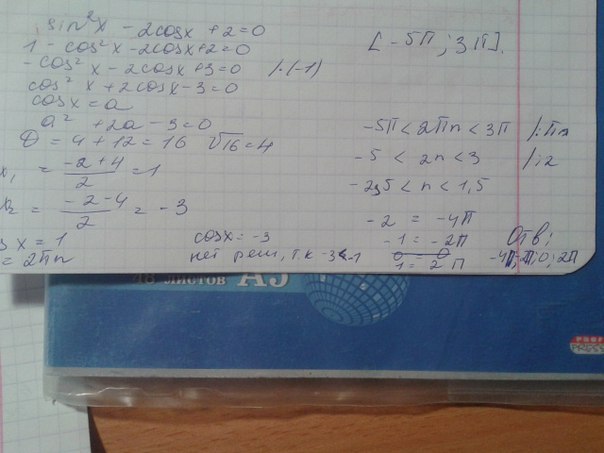 sin²x - 2cosx + 2 = 0
1 - cos²x - 2cosx + 2 = 0
-cos²x - 2cosx + 3 = 0 /·(-1)
cos²x + 2cosx - 3 = 0
cosx = a
a² + 2a - 3 = 0
D = 4 + 12 = 16 √16 = 4
x₁ = (-2+4)/2 = 1
x₂ = (-2-4)/2 = -3
s x = 1
= 2πn
cosx = -3
нет реш, тк -3<-1
[-5π; 3π].
-5π < 2πn < 3π /:π
-5 < 2n < 3 /:2
-2,5 < n < 1,5
-2 = -4π
-1 = -2π
0 = 0
1 = 2π
Отв:
-4π; -2π; 0; 2π
48 листов А5